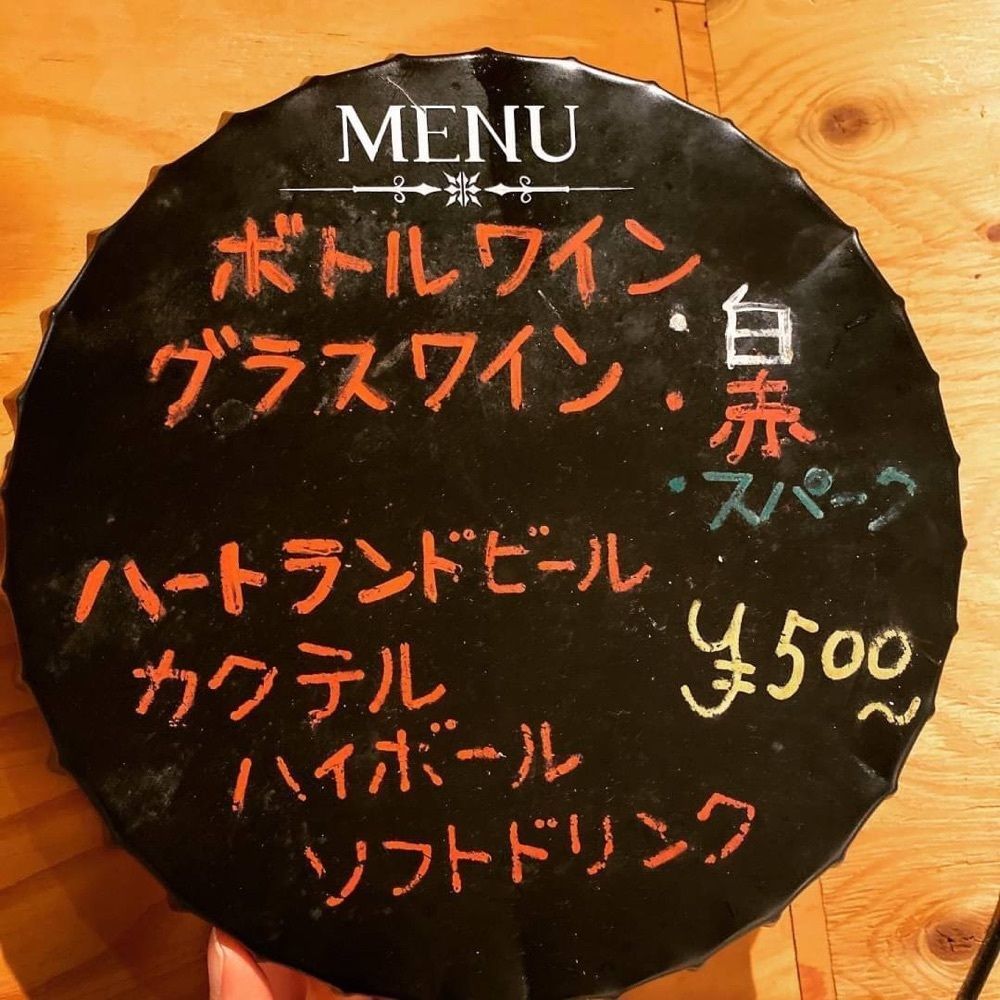 MENU
ボトルワイン
グラスワイン
・白
・赤
・スパーク
ハートランドビール
カクテル
ハイボール
ソフトドリンク
¥500~